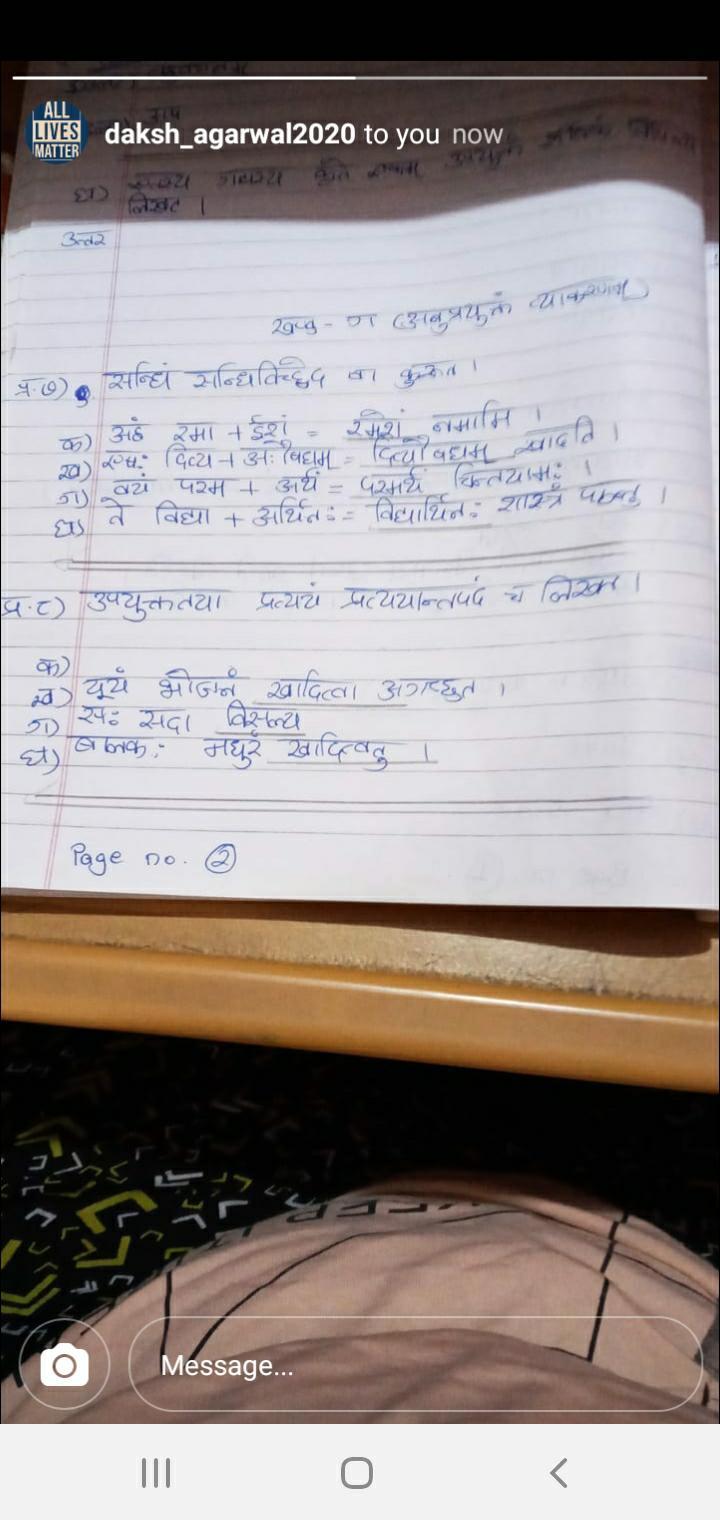 ALL
LIVES
MATTER
daksh_agarwal2020 to you now
घ)
लिखत ।
उत्तर
खण्ड - ग (अनुप्रयुक्तं व्याकरणम्)
प्र.७) सन्धिं सन्धिविच्छेद वा कुरुत ।
क) अहं रमा + ईशं = रमेशं नमामि ।
ख) एषः दिव्य + औषधम् = दिव्यौषधम् खादति ।
ग) वयं परम + अर्थं = परमर्थं चिन्तयामः ।
घ) ते विद्या + अर्थिनः = विद्यार्थिनः शास्त्रं
प्र.८) उपयुक्ततया प्रत्ययं प्रत्ययान्तपदं च लिखत ।
क)
ख) यूयं भोजनं खादित्वा अगच्छत ।
ग) सः सदा
घ) बालकः मधुरं खादितवतु ।
Page no. 2
Message...